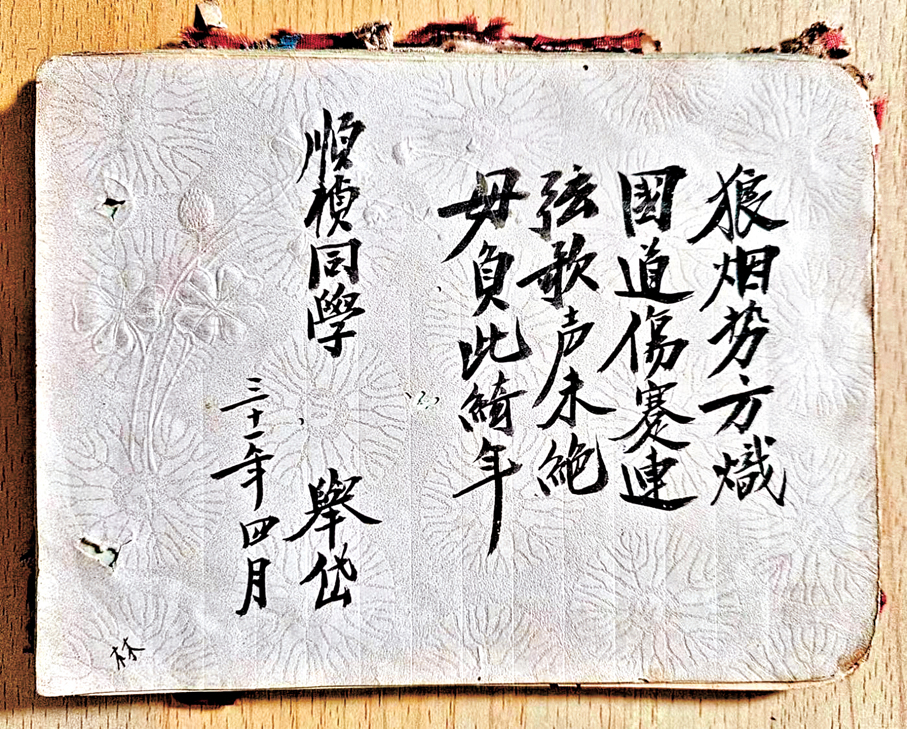 狼烟势方熾
國道傷蹇連
弦歌声未絶
毋負此綺年
順楨同學
舉岱
三十一年四月
林